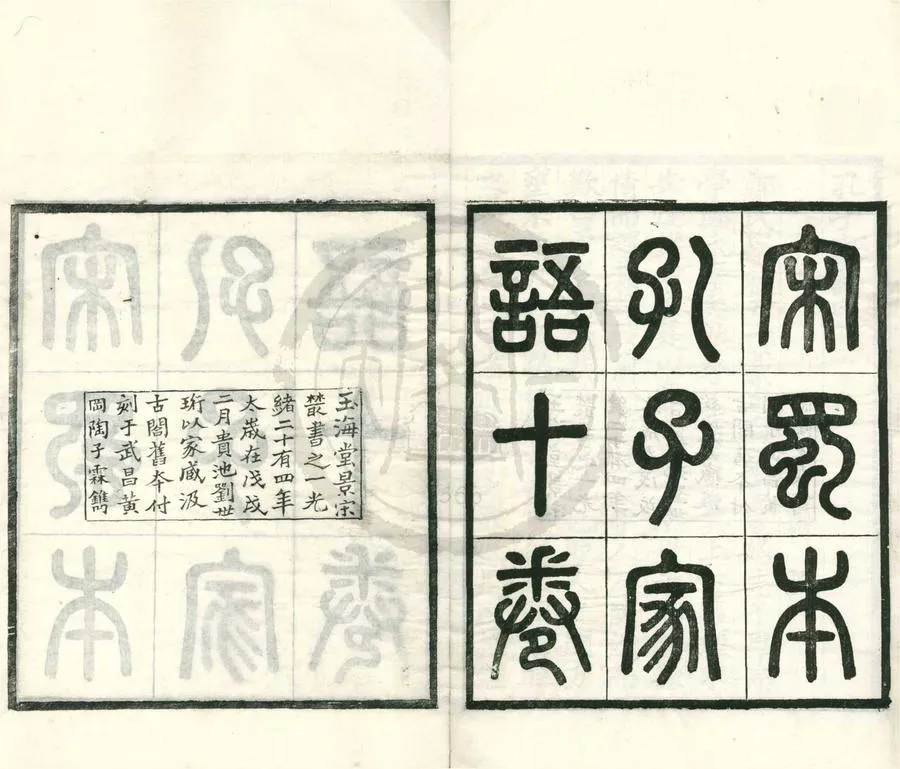 宋蜀本
孔子家
語十卷
玉海堂景宋
叢書之一光
緒二十有四年
太歲在戊戌
二月貴池劉世
珩以家臧汲
古閣舊本付
刻于武昌黄
岡陶子霖鐫